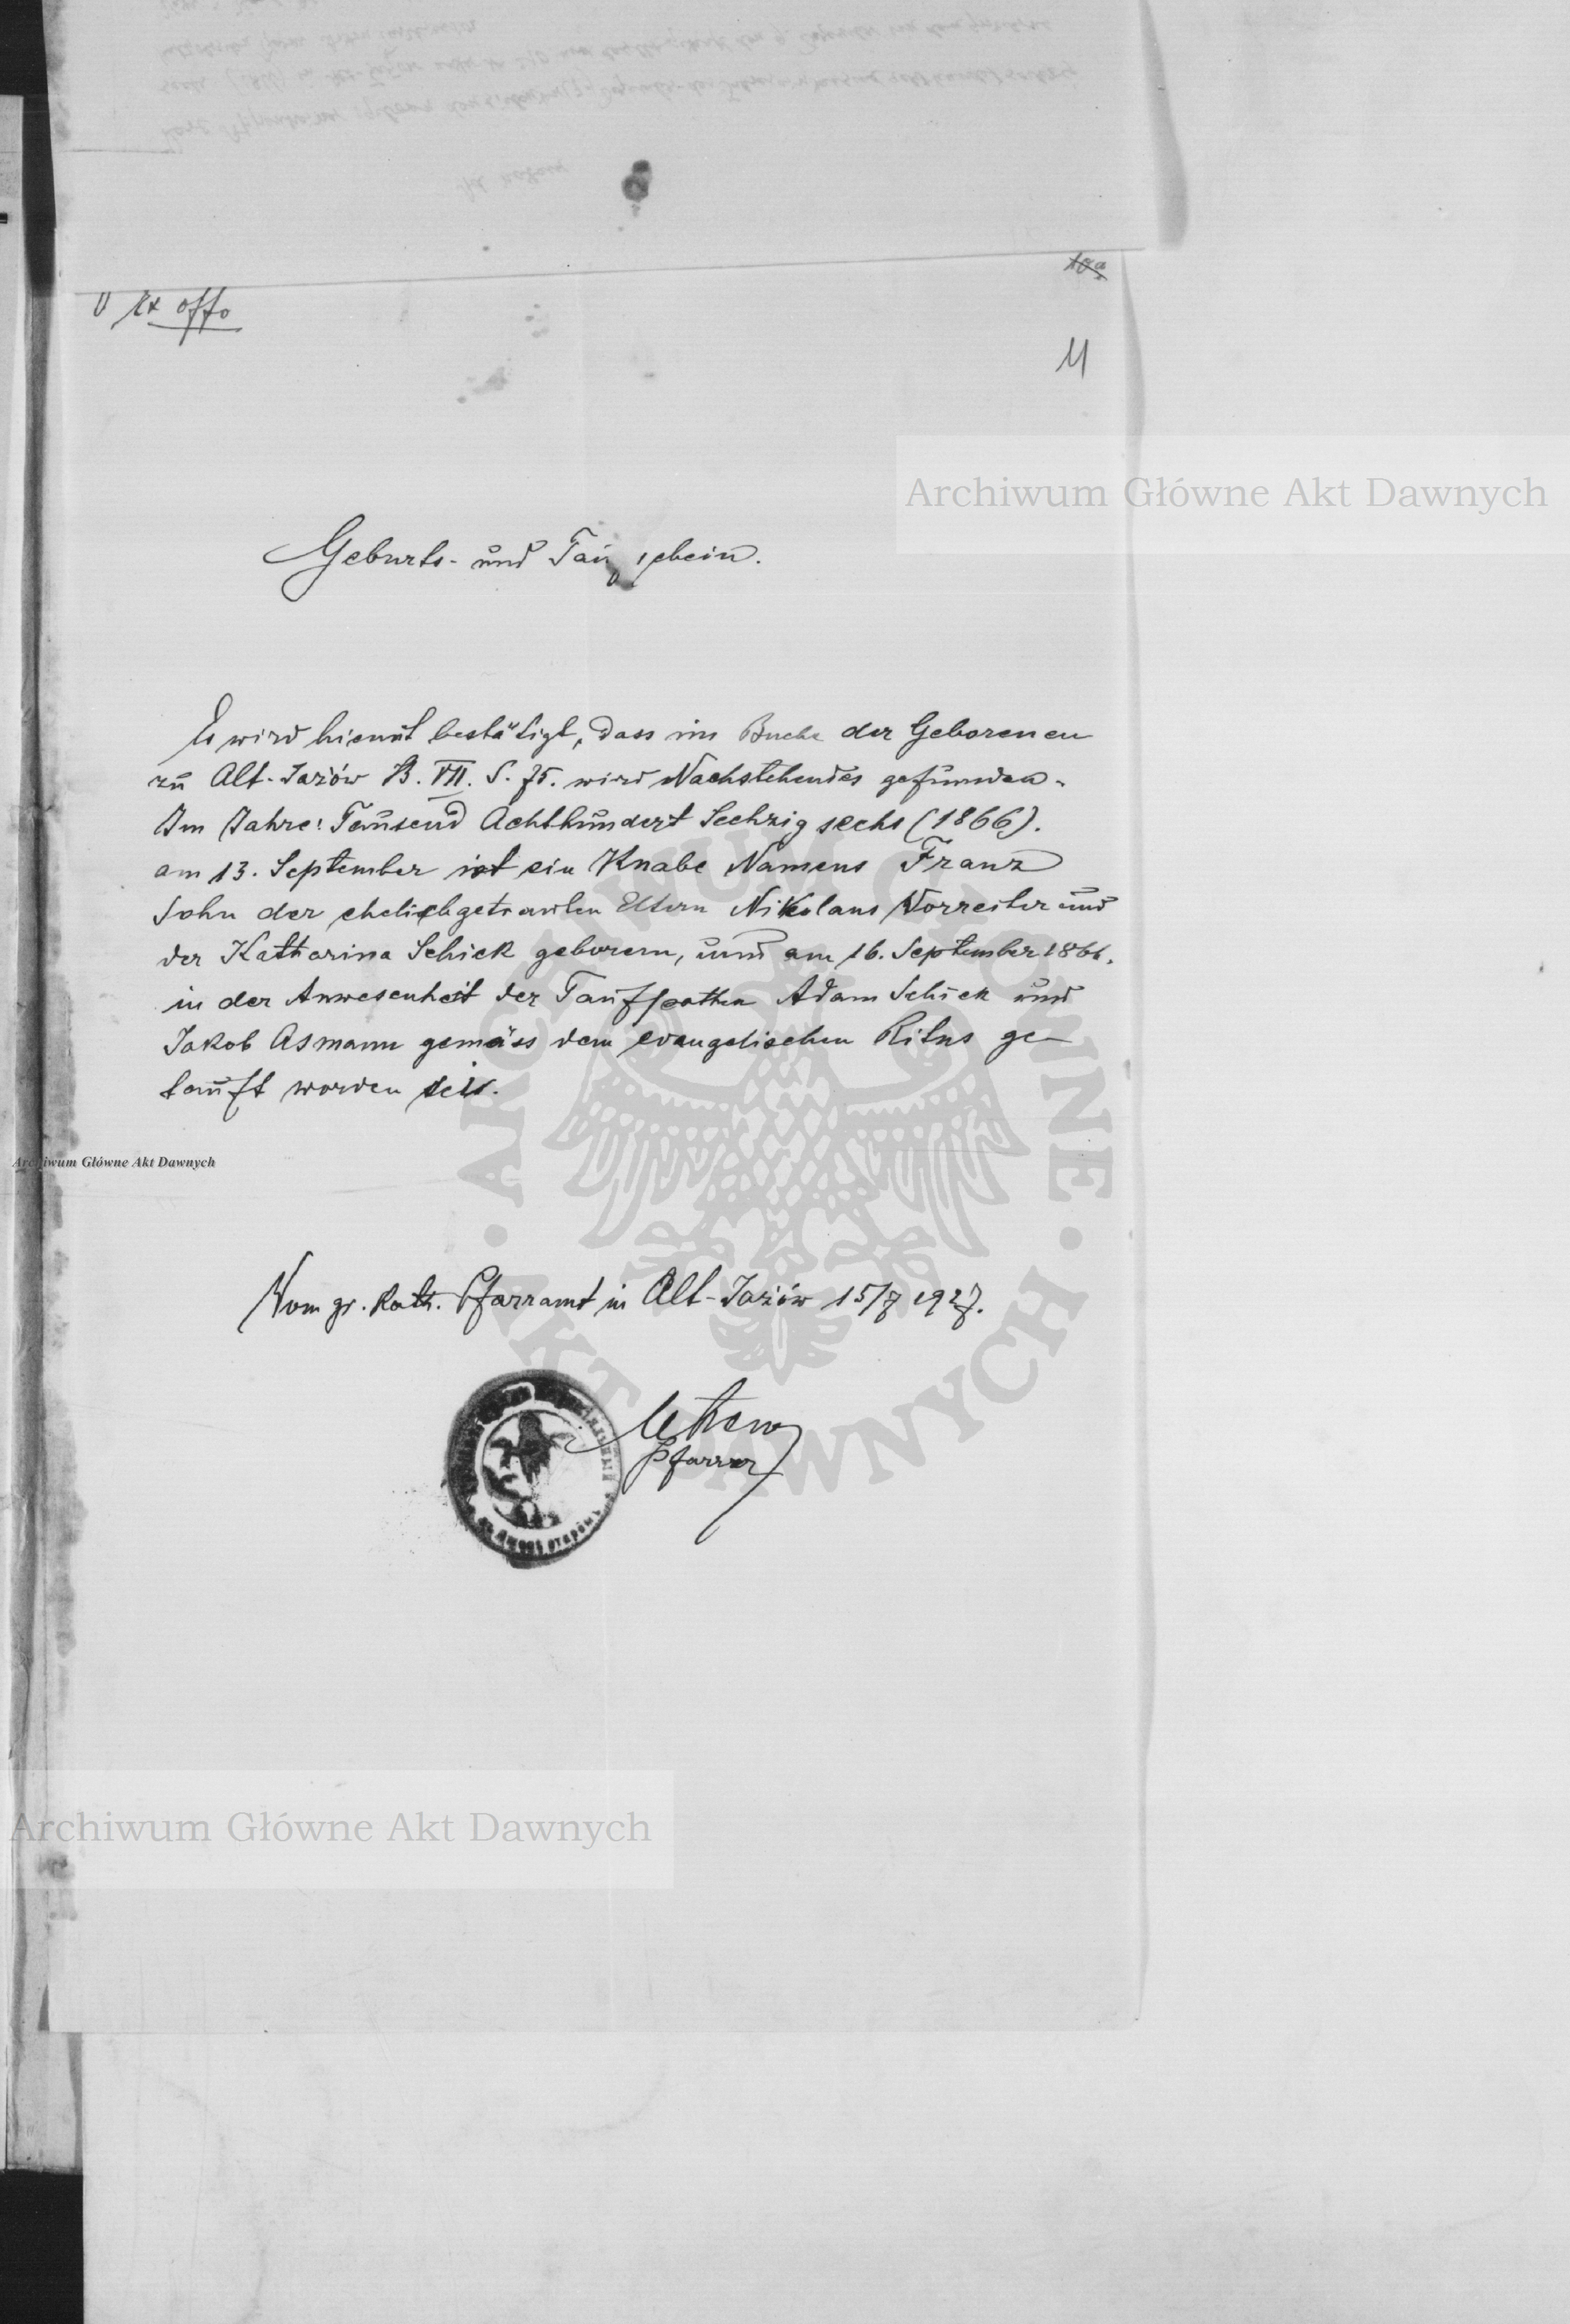 10a
Ex offo
11
Archiwum Główne Akt Dawnych
Geburts- und Taufschein.
Es wird hiemit bestätigt, dass im Buche der Geborenen
zu Alt-Jażów B. VII. S. 75. wird Nachstehendes gefunden.
Im Jahre: Tausend Achthundert Sechzig sechs (1866).
am 13. September ist ein Knabe Namens Franz
Sohn der ehelichgetrauten Eltern Nikolaus Vorreiter und
der Katharina Schick geboren, und am 16. September 1866.
in der Anwesenheit der Taufpathen Adam Schick und
Jakob Asmann gemäss dem evangelischen Ritus ge-
tauft worden sei.
Archiwum Główne Akt Dawnych
Vom gr. kath. Pfarramt in Alt-Jażów 15/7 1927.
Pfarrer
ARCHIWUM GŁÓWNE · AKT DAWNYCH ·
Archiwum Główne Akt Dawnych